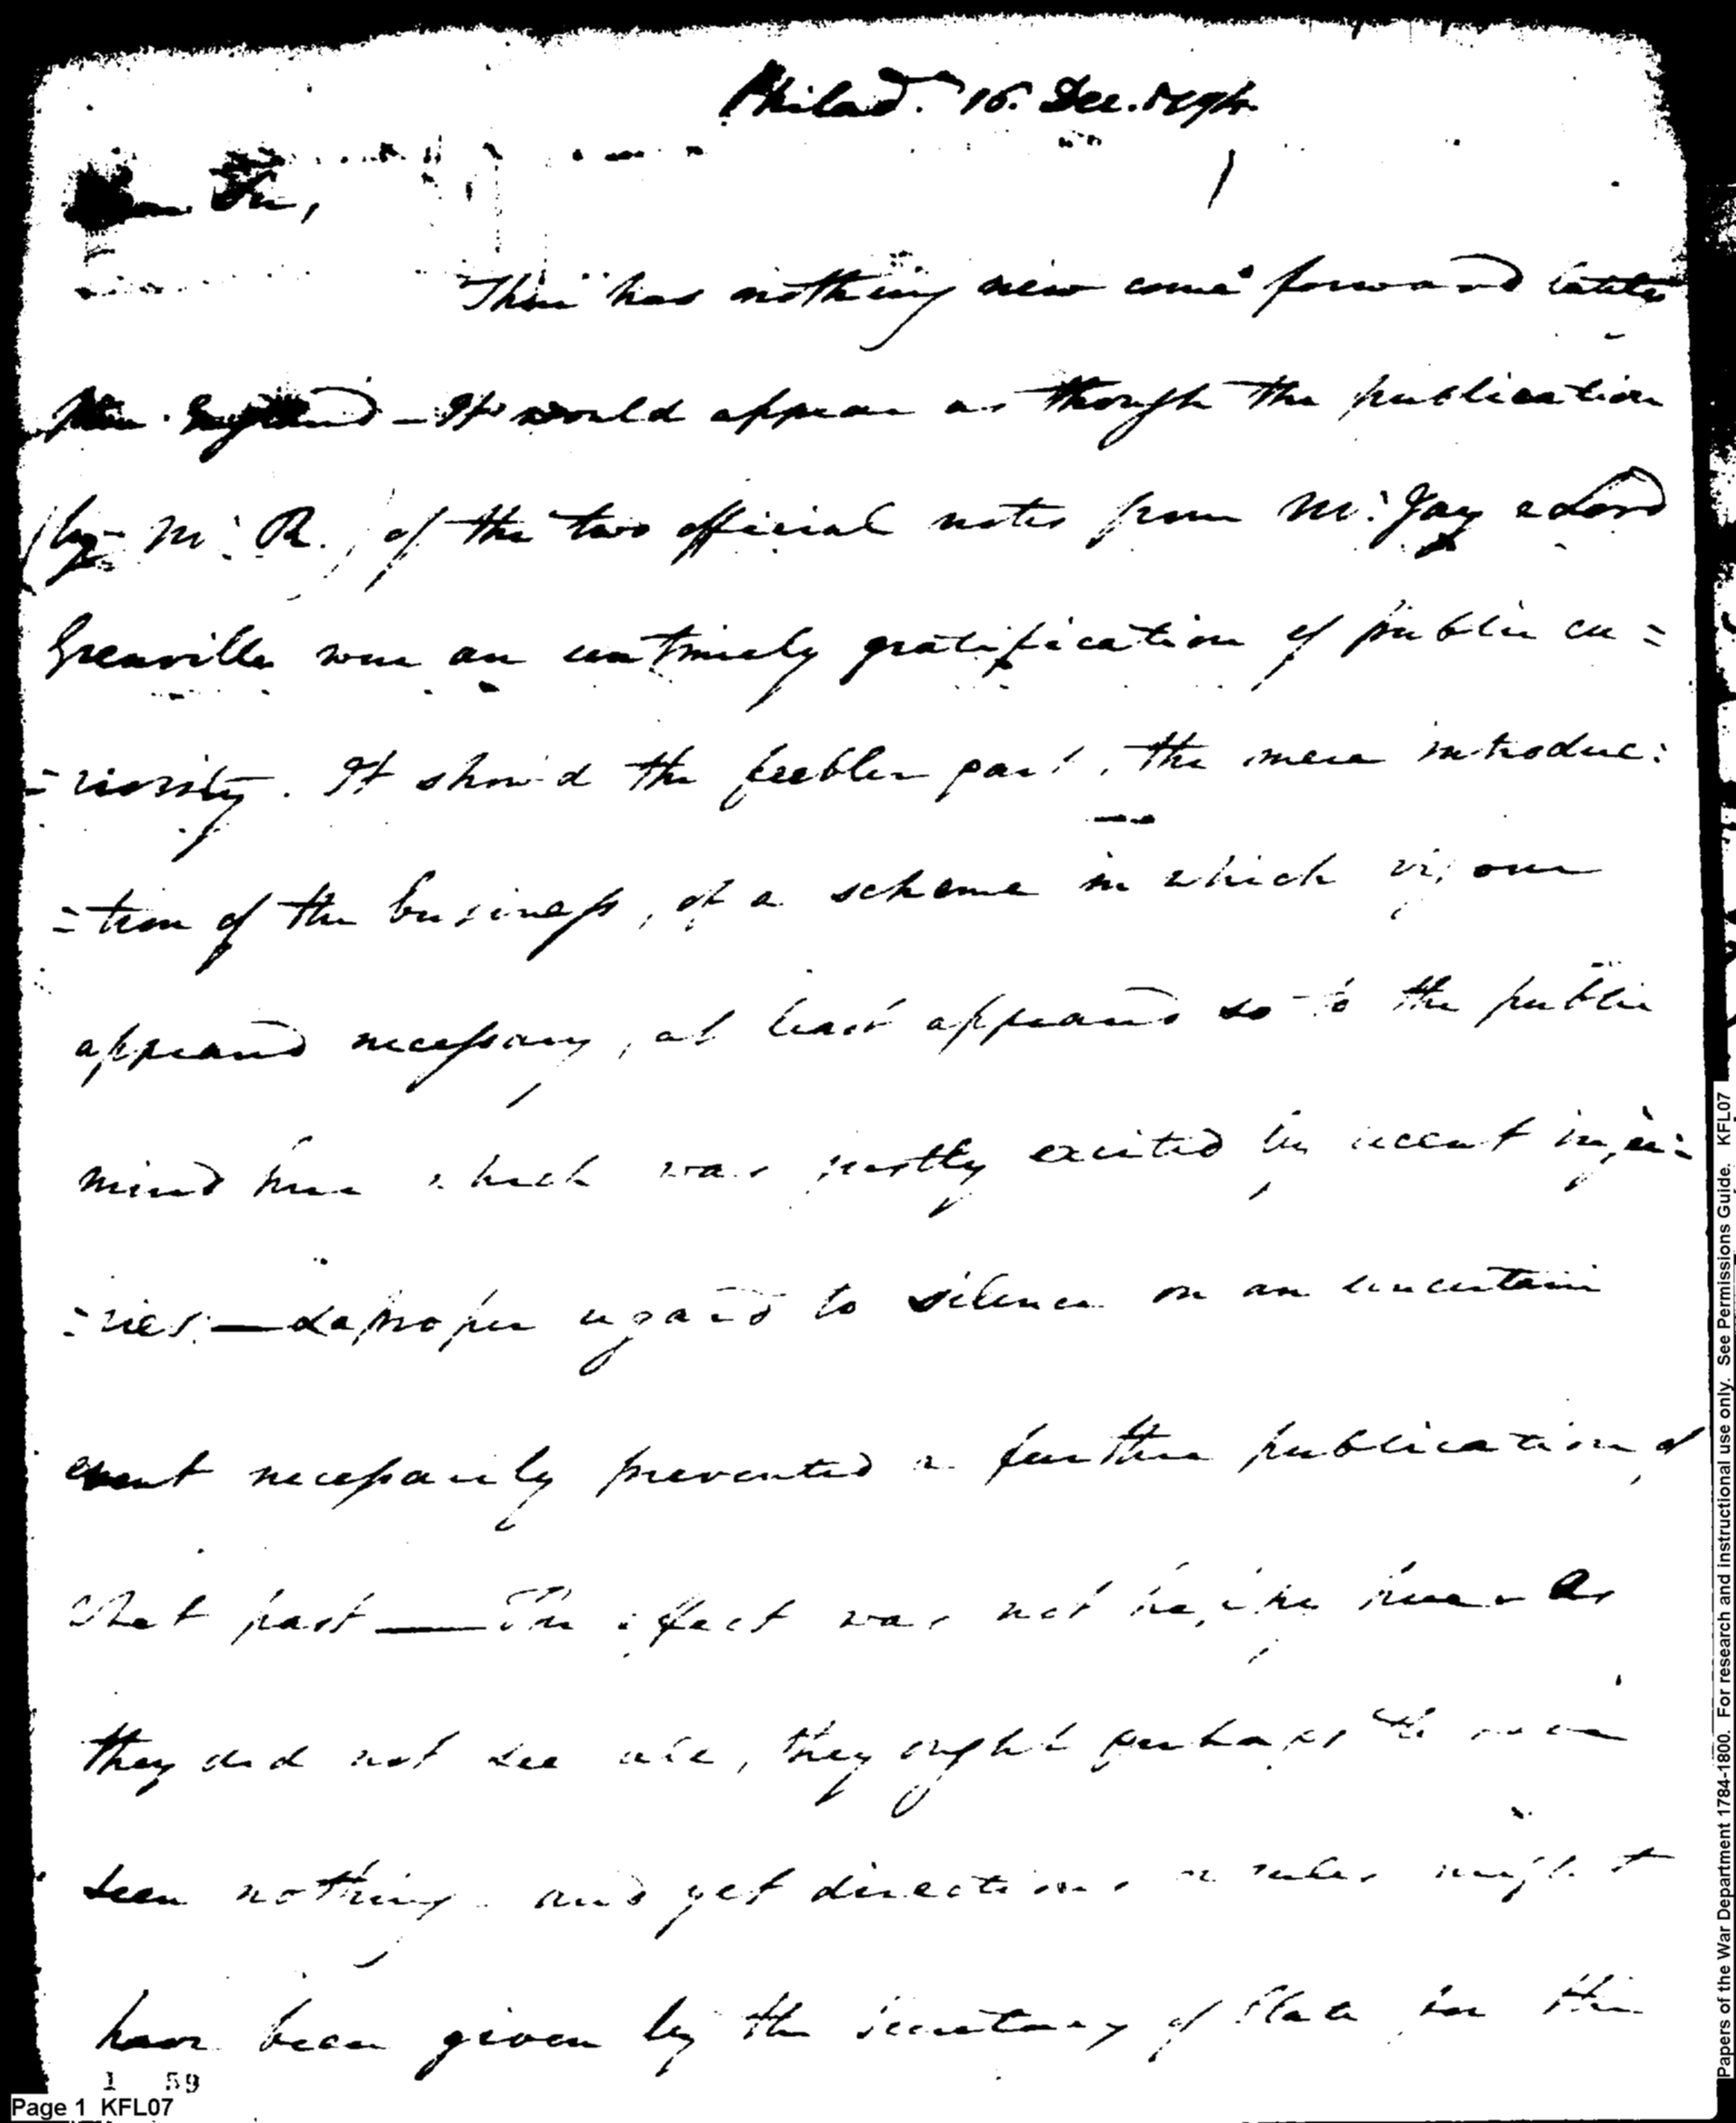 Philad. 16. Dec. 1794.
Sir,
There has nothing new come forward
from England - It would appear as though the publication
by Mr. R., of the two official notes from Mr. Jay & Lord
Grenville were an untimely gratification of public cu=
=riosity. It show'd the feebler part, the mere introduc:
=tion of the business, of a scheme in which vigour
appeared necessary, at least appeared so to the public
mind here which was justly excited by recent inju:
:ries. — & a proper regard to silence on an uncertain
event necessarily prevented a further publication of
that past — The effect was not happy here - As
they did not see all, they ought perhaps to have
seen nothing and yet directions or rules might
have been given by the Secretary of State for the
1 59
Page 1 KFL07
Papers of the War Department 1784-1800. For research and instructional use only. See Permissions Guide. KFL07